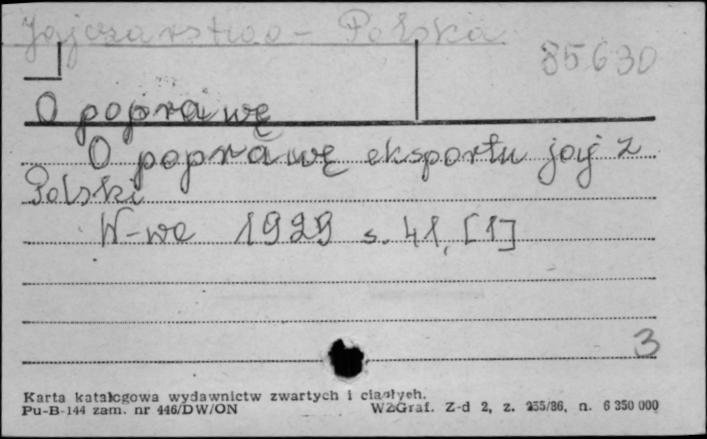 Jajczarstwo - Polska
85630
O poprawę
O poprawę eksportu jaj z
Polski
W-wa 1929 s. 41, [1]
3
Karta katalogowa wydawnictw zwartych i ciągłych.
Pu-B-144 zam. nr 446/DW/ON WZGraf. Z-d 2, z. 235/86, n. 6 350 000